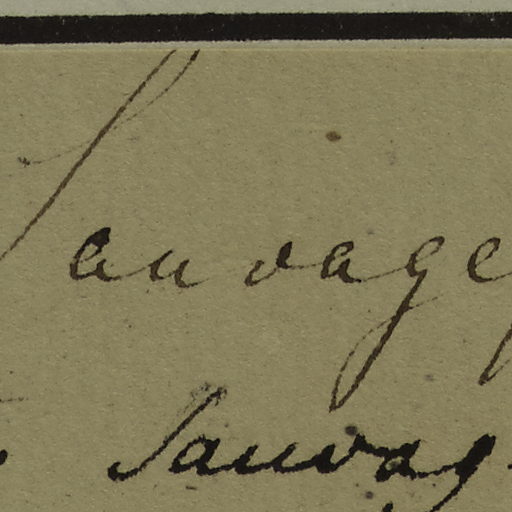 Sauvage
Sauvag